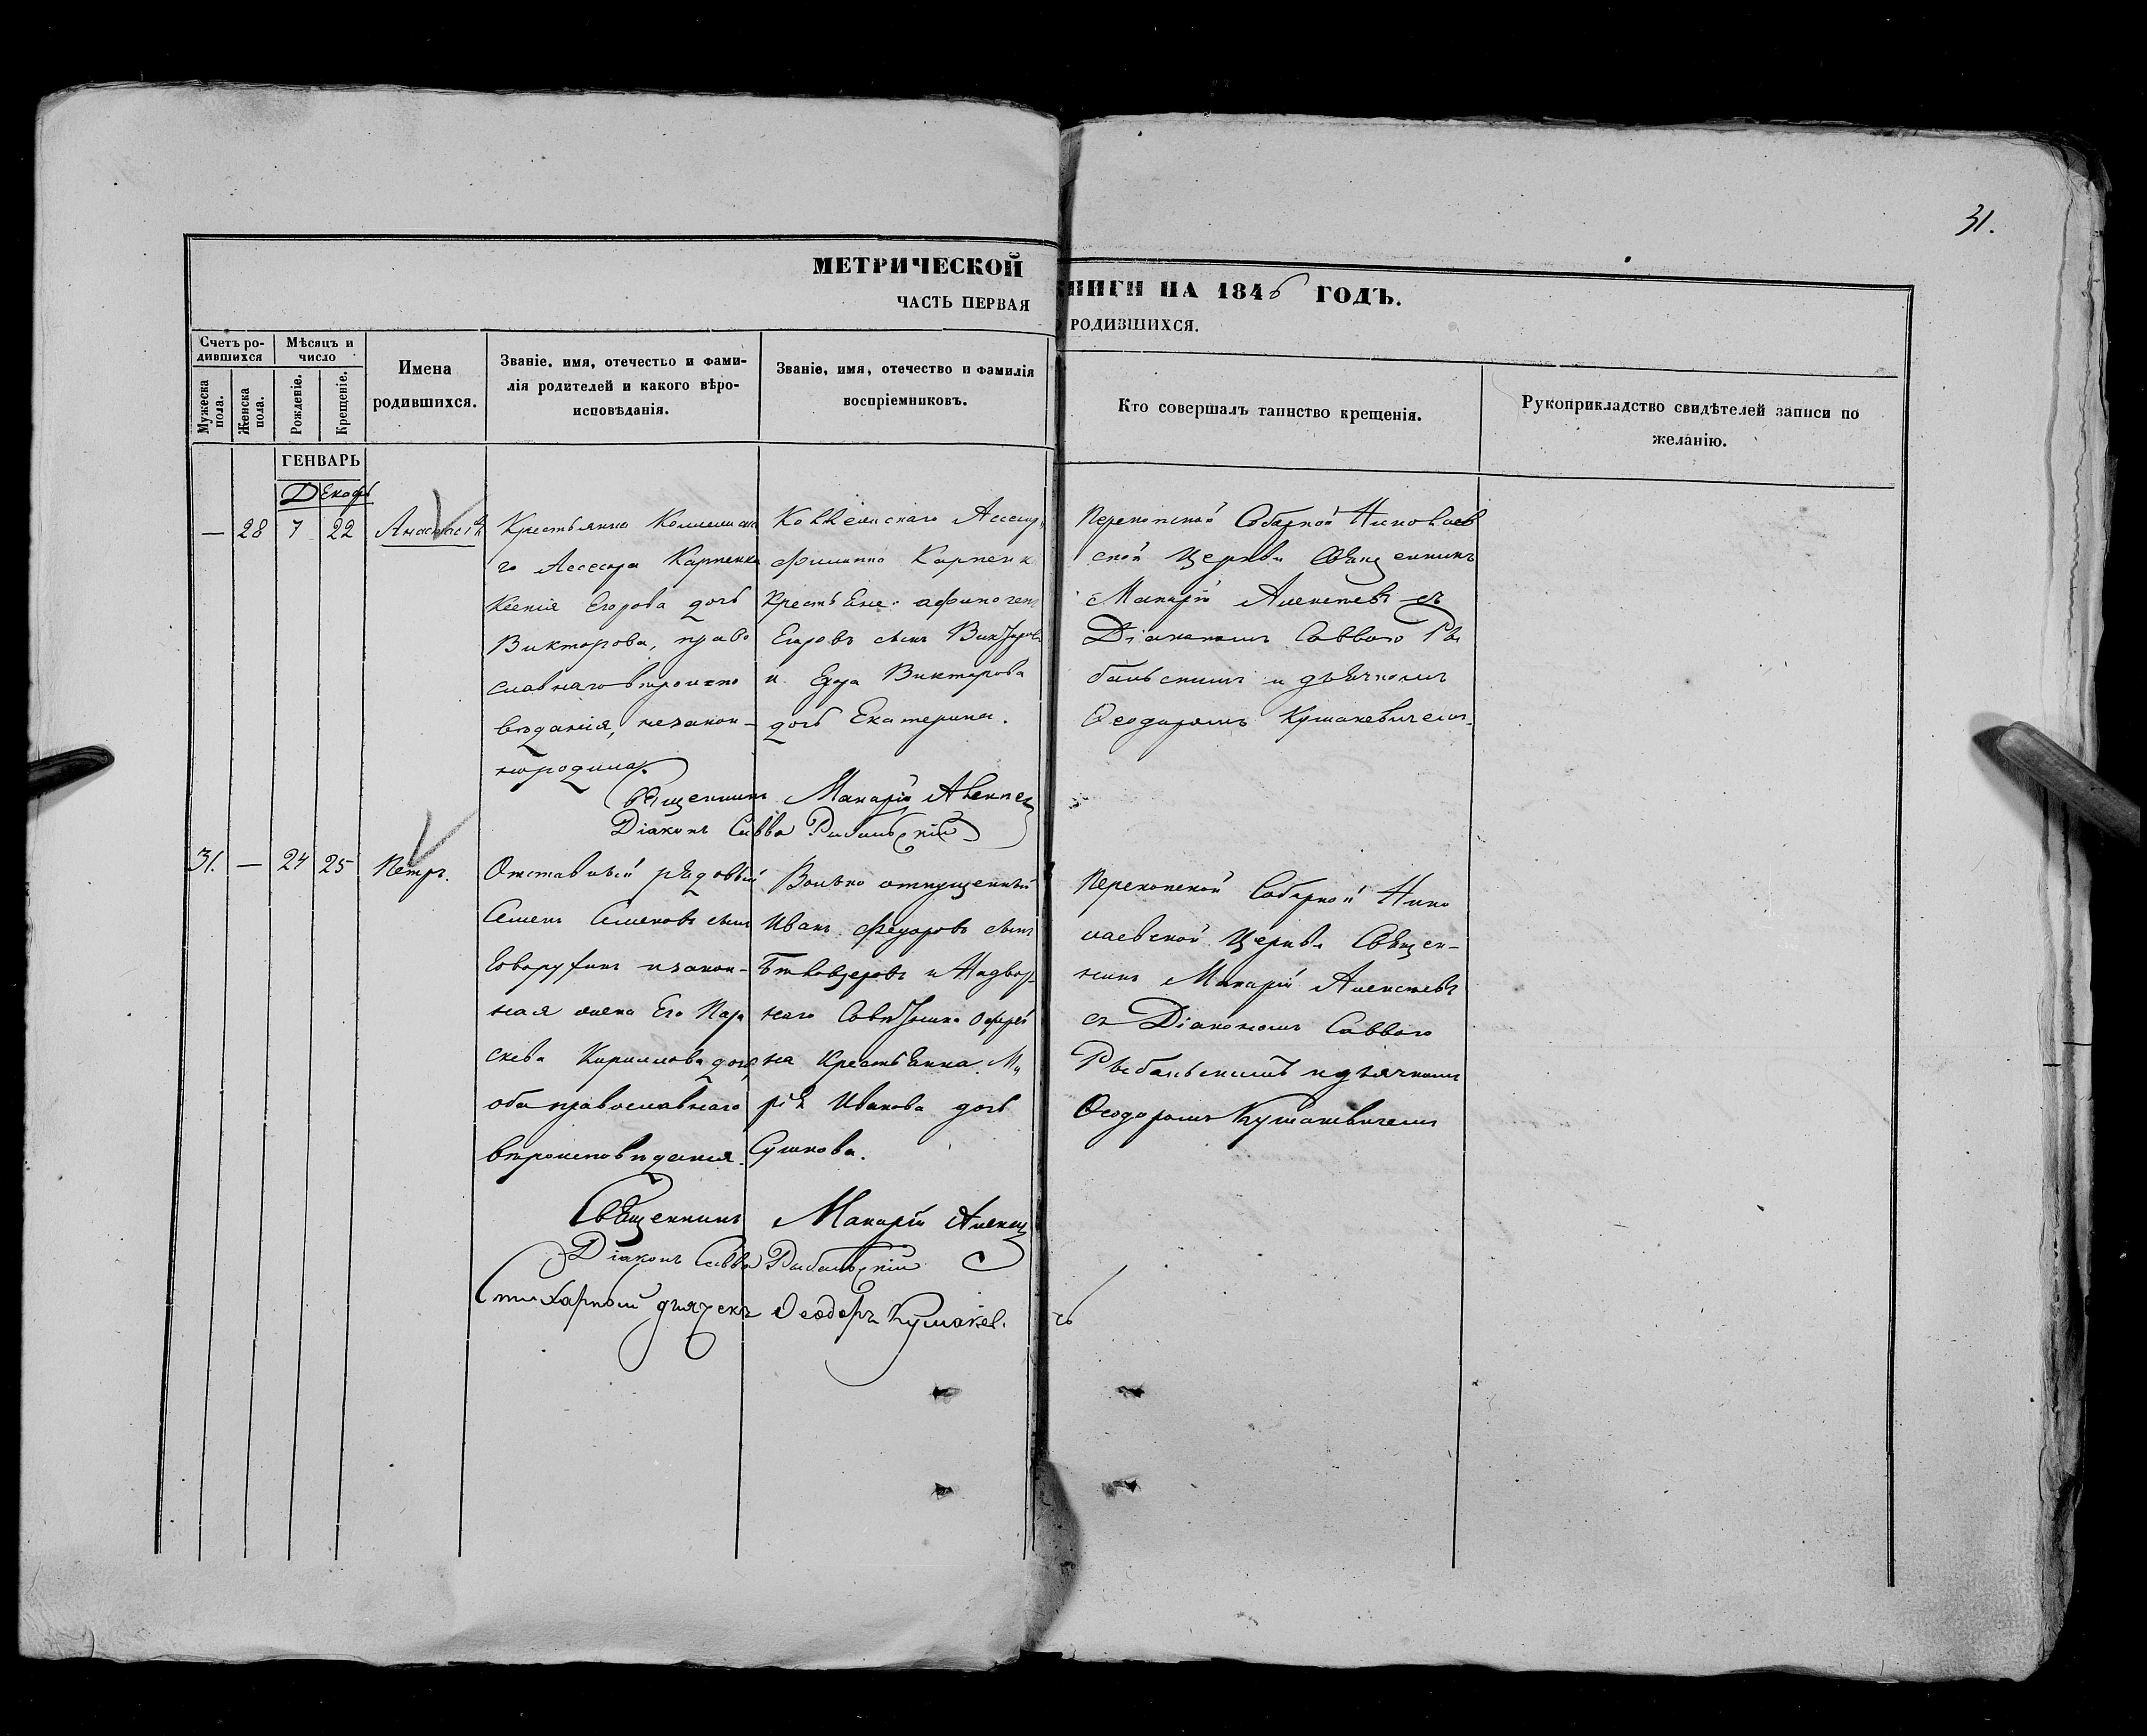 31.
МЕТРИЧЕСКОЙ
НИГИ НА 1846 ГОДЪ.
ЧАСТЬ ПЕРВАЯ
РОДИВШИХСЯ.
Счетъ ро-
дившихся
Мѣсяцъ и
число
Мужеска
пола.
Женска
пола.
Рожденіе.
Крещеніе.
Имена
родившихся.
Званіе, имя, отечество и фами-
лія родителей и какого вѣро-
исповѣданія.
Званіе, имя, отечество и фамилія
воспріемниковъ.
Кто совершалъ таинство крещенія.
Рукоприкладство свидѣтелей записи по
желанію.
ГЕНВАРЬ
Декабр
— 28 7 22 Анастасія
Крестьянка Коллежска
го Ассесора Карпенка
Ксенія Егорова дочь
Викторова, право
славнаго вѣроиспо
вѣданія, незакон-
Коллежскаго Ассесор
Филиппа Карпенк
Егоровъ сынъ Викторов
и Егора Викторова
дочь Екатерина.
Перекопской Соборной Николаев
ской Церкви Священникъ
Макарій Алексѣевъ съ
Діакономъ Саввою Ры
бальскимъ и дьячкомъ
Ѳеодоромъ Кушакевичемъ
Священникъ Макарій Алексѣ
Діаконъ Савва Рибальскій
31. — 24 25 Петръ.
Отставный рядовый
Семенъ Семеновъ сынъ
законная жена Его Пара
скева Кириллова дочь,
оба православнаго
вѣроисповѣданія.
Вольно отпущенный
Иванъ Федоровъ сынъ
и Надвор-
наго Совѣтника
на Крестьянка Ма
рія Иванова дочь
Сушкова.
Перекопской Соборной Нико
лаевской Церкви Священ-
никъ Макарій Алексѣевъ
съ Діакономъ Саввою
Рыбальскимъ и дьячкомъ
Ѳеодоромъ Кушакевичемъ
Священникъ Макарій Алексѣ
Діаконъ Савва Рибальскій
Стихарный дьячекъ Ѳеодоръ Кушакев.